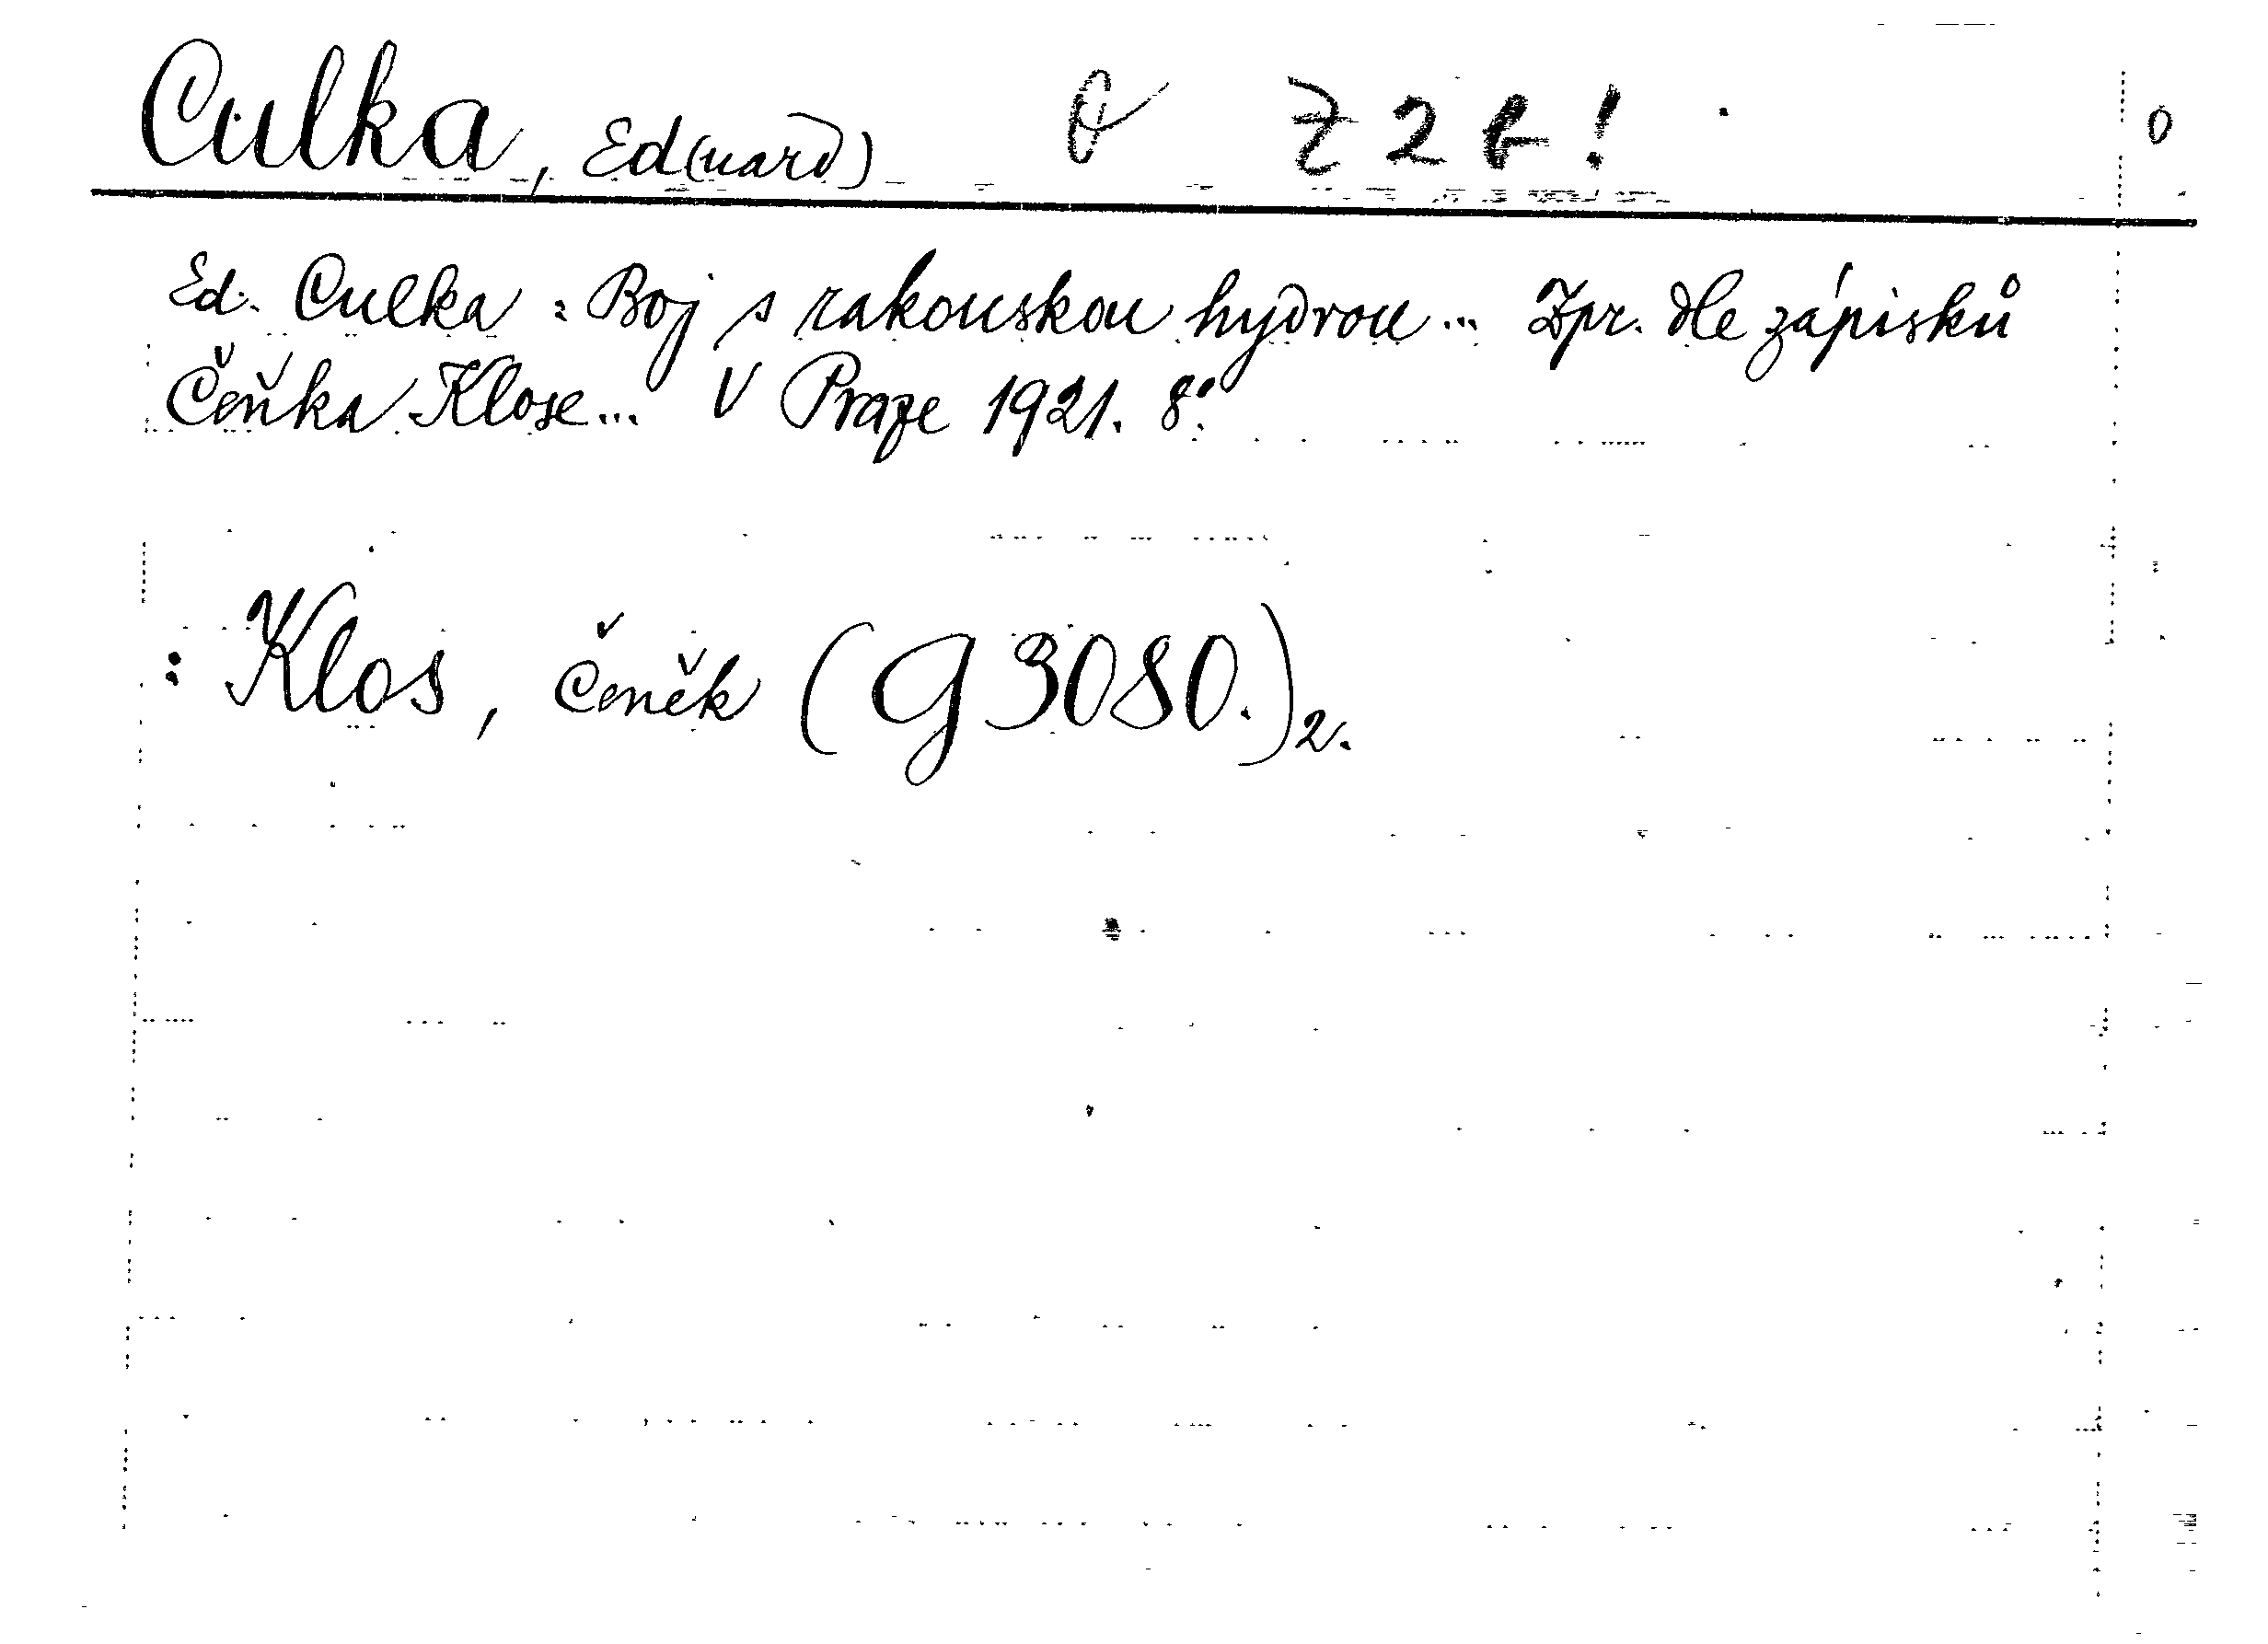 Culka, Ed(uard) Z2b! 0
Ed. Culka: Boj s rakouskou hydrou... Zpr. dle zápisků
Čeňka Klose... V Praze 1921. 8°.
: Klos, Čeněk (G 3080.)2.